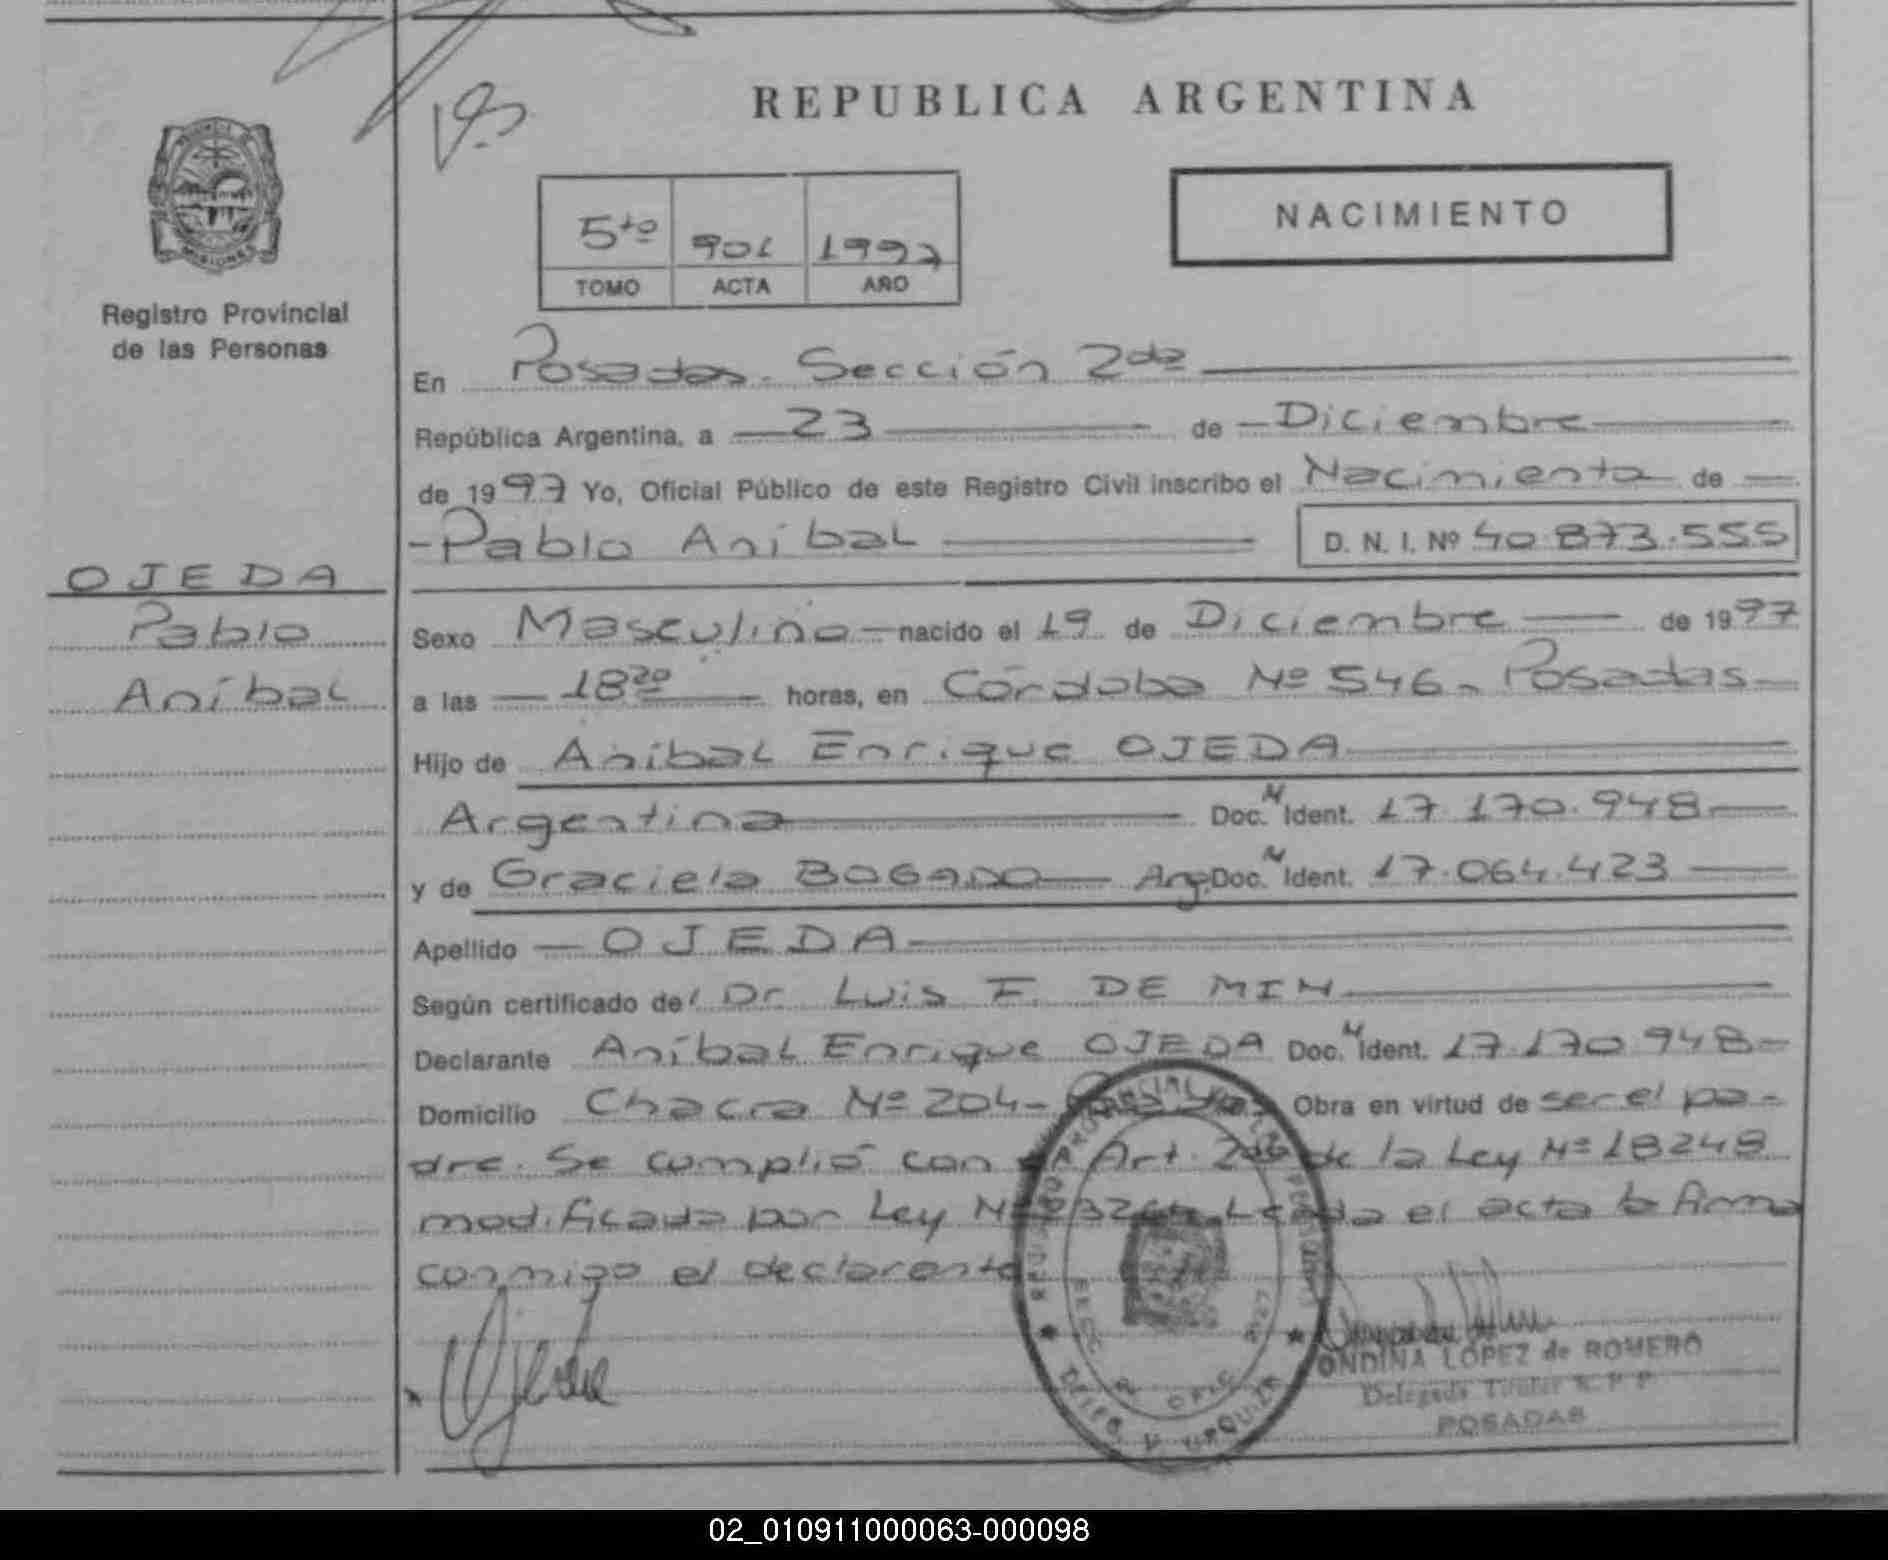 REPUBLICA ARGENTINA
NACIMIENTO
5to 901 1997
TOMO ACTA AÑO
MISIONES
Registro Provincial
de las Personas
En Posadas. Sección 2da
República Argentina, a 23 de Diciembre
de 1997 Yo, Oficial Público de este Registro Civil inscribo el Nacimiento de
Pablo Aníbal D. N. I. Nº 40 873.555
OJEDA
Pablo
Aníbal
Sexo Masculino nacido el 19 de Diciembre de 1997
a las 18 20 horas, en Córdoba Nº 546 - Posadas
Hijo de Aníbal Enrique OJEDA
Argentina Doc. N Ident. 17 170.948
y de Graciela BOGADO Arg. Doc. N Ident. 17.064.423
Apellido OJEDA
Según certificado del Dr Luis F. DE MIN
Declarante Aníbal Enrique OJEDA Doc. N Ident. 17.170 948
Domicilio Chacra Nº 204 - Obra en virtud de ser el pa-
dre. Se cumplió con Art. 2do de la Ley Nº 18248
modificada por Ley Leída el acta la firma
conmigo el declarante
ONDINA LOPEZ de ROMERO
Delegada Titular R. P. P.
POSADAS
02_010911000063-000098